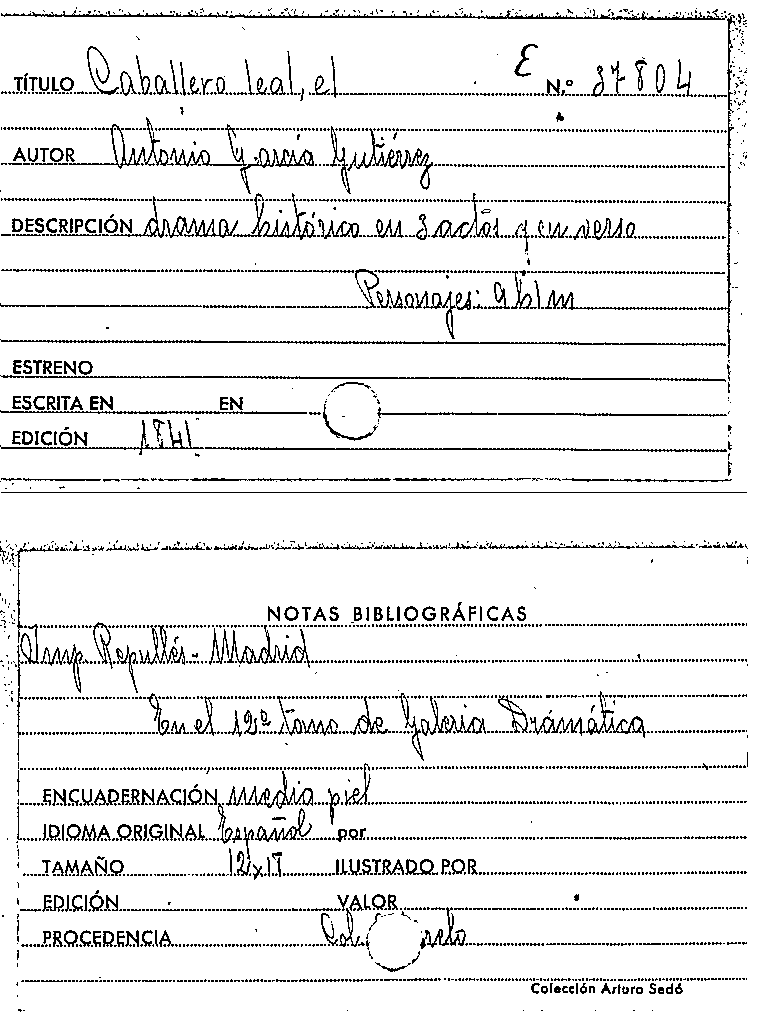 TÍTULO Caballero leal, el E N.º 37804
AUTOR Antonio García Gutiérrez
DESCRIPCIÓN drama histórico en 3 actos y en verso
Personajes: 9 h 1 m
ESTRENO
ESCRITA EN EN
EDICIÓN 1841
NOTAS BIBLIOGRÁFICAS
Imp Repullés - Madrid
En el 12º tomo de Galeria Drámática
ENCUADERNACIÓN media piel
IDIOMA ORIGINAL Español por
TAMAÑO 12x17 ILUSTRADO POR
EDICIÓN VALOR
PROCEDENCIA
Colección Arturo Sedó